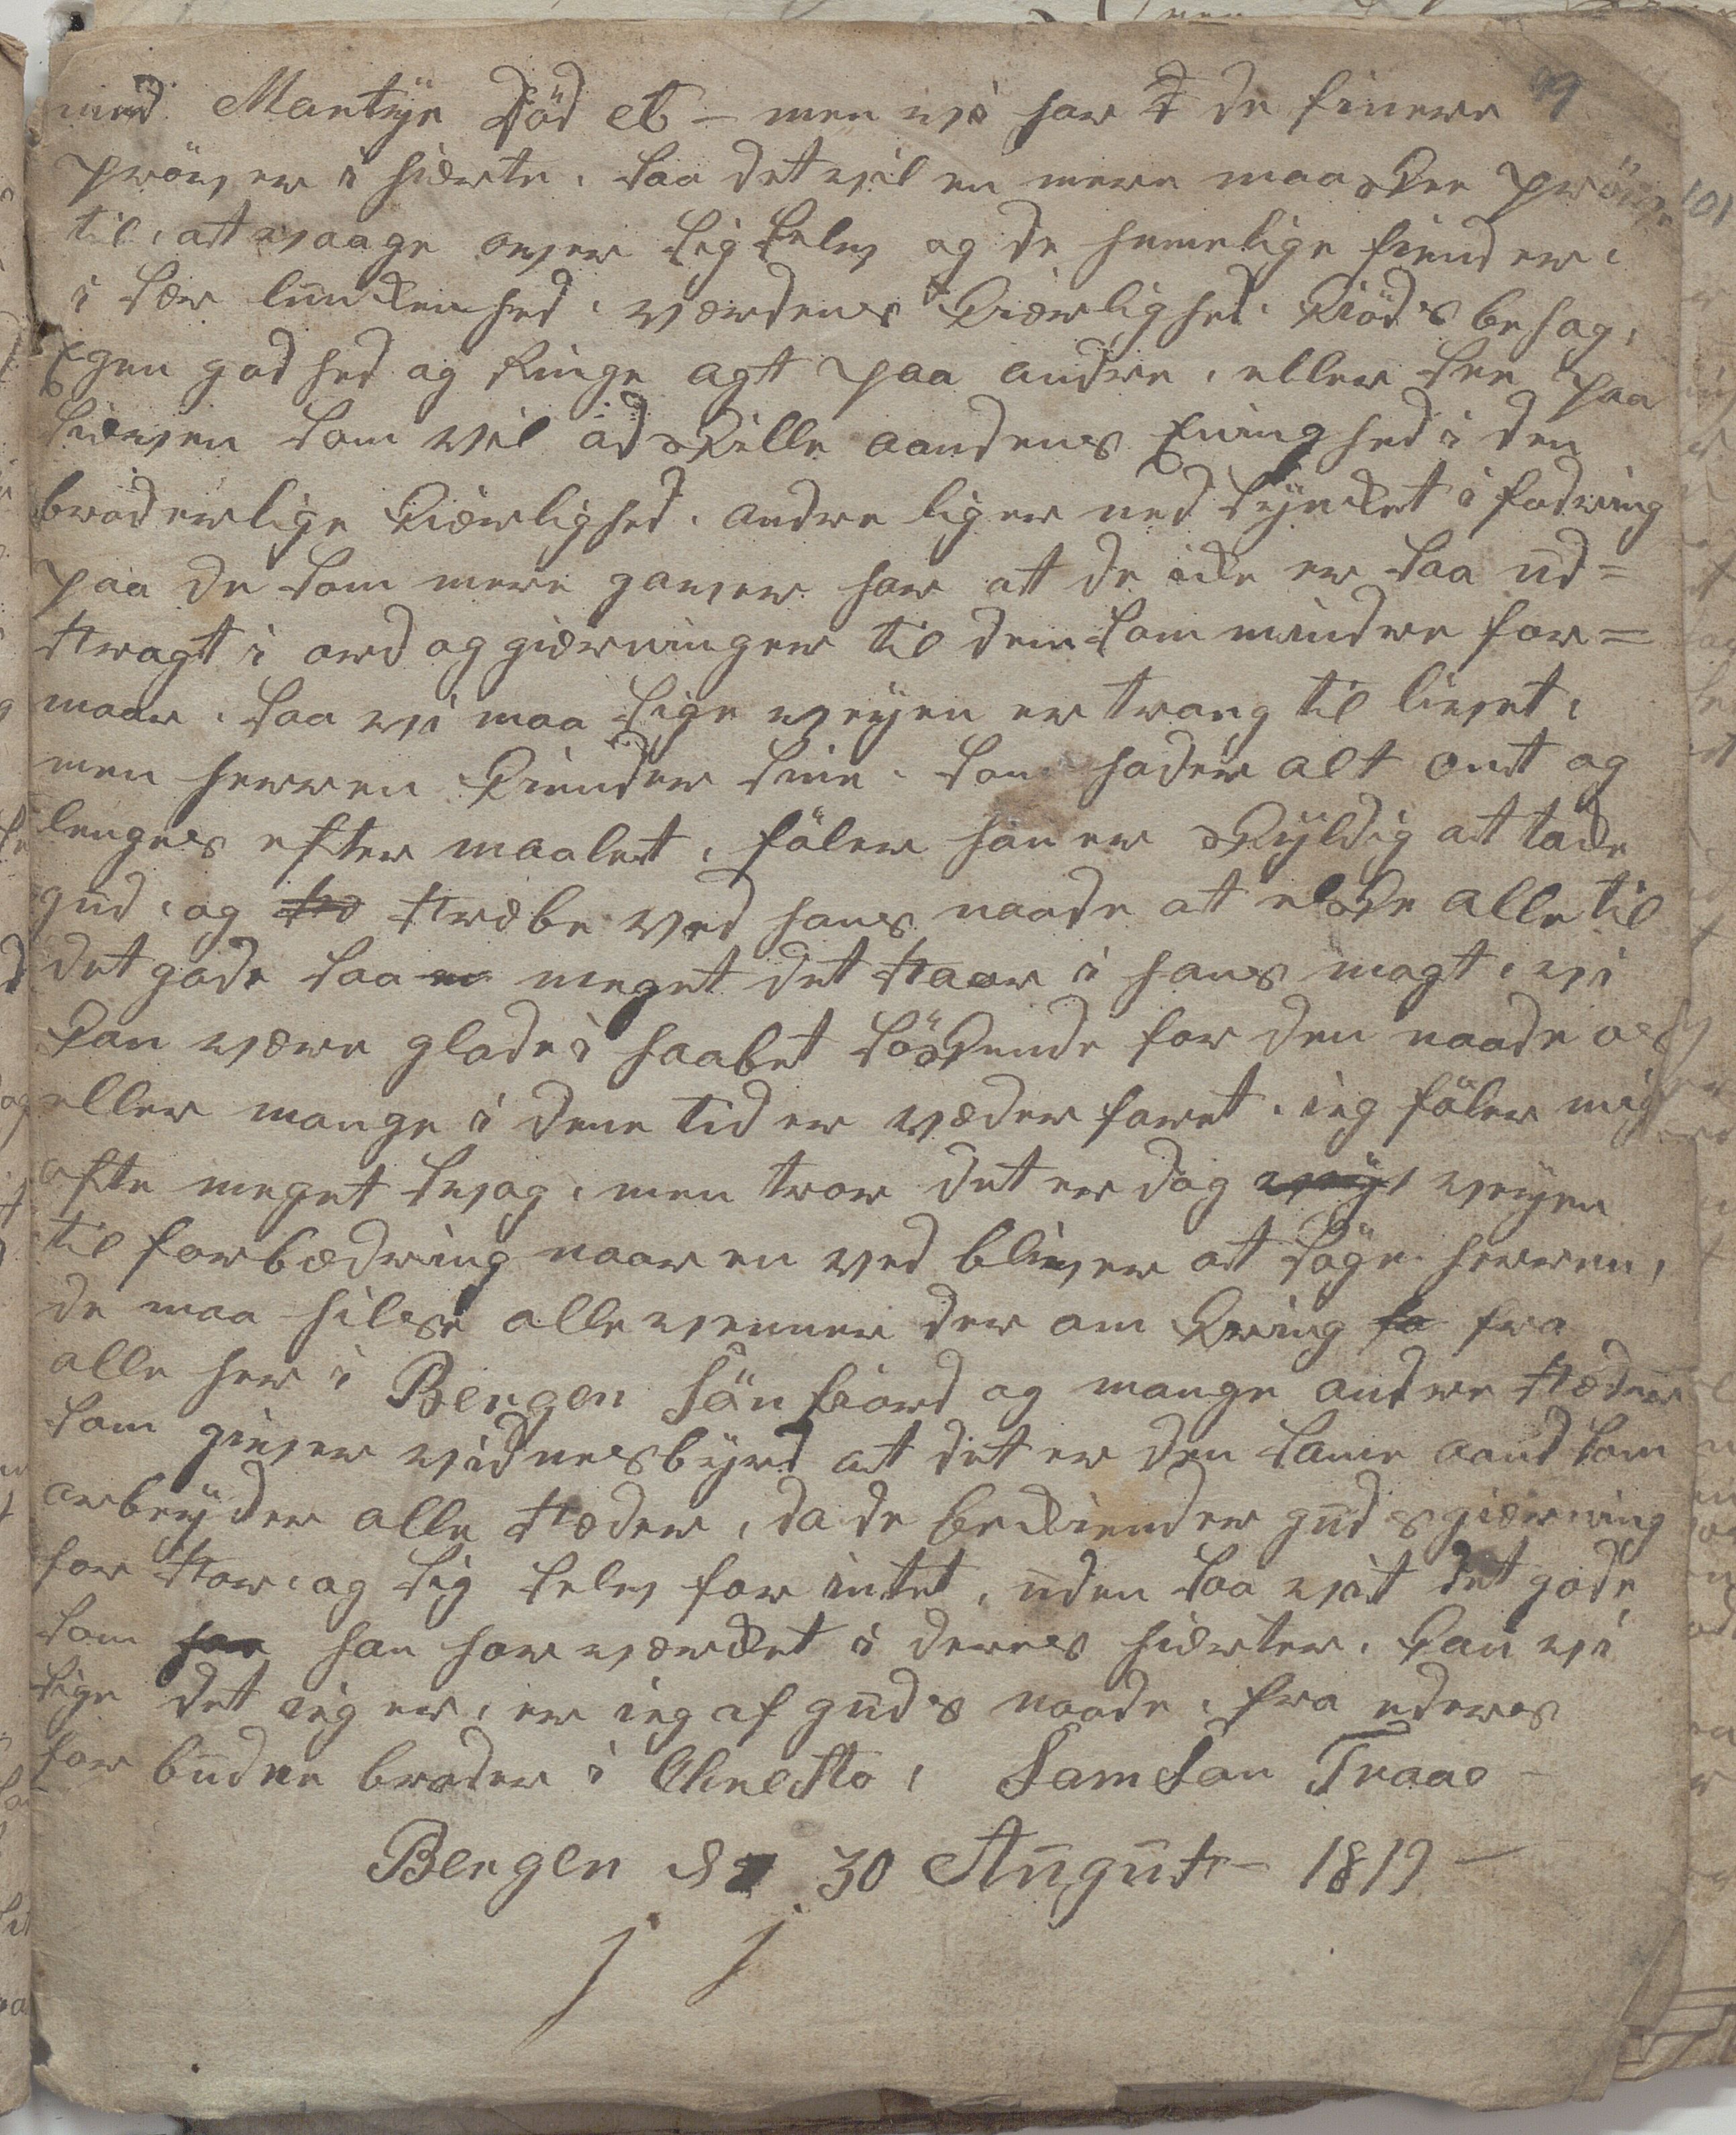 99
med Martÿr Död et – men vi har de finere
pröver i hierte, saa det vil en mere maaskee pröve
til, at vaage over sig selv og de hemelige fiender,
i sær lunckenhed, værdens Kierlighed, Kiöds behag,
Egen godhed og Ringe agt paa andre, eller see paa
skieven som vil adskille aandens Eninghed i den
broderlige Kierlighed, andre liger nedsÿncket i fodring
paa de som mere gaver har at de icke er saa ud=
stragt i ord og gierninger til dem som mindre for=
maar, saa vi maa sige veÿen er trang til livet,
men herren Kiender sine, som hader alt ont og
lenges efter maalet, föler han er skÿldig at tacke
gud, og stræbe ved hans naade at elske alle til
det gode saa meget det staar i hans magt, vi
kan være glade i haabet söskende for den naade os
eller mange i dene tid er væderfaret, ieg föler mig
ofte meget svag, men tror det er dog veÿen
til forbedring naar en ved bliver at söge herren,
de maa hilse alle venner der om Kring fra
alle her i Bergen Sönfiord og mange andre stæder
som giver vidnesbÿrd at det er den same aand som
arbeÿder alle stæder, da de bekiender guds gierning
for stor, og sig selv for intet, uden saa vit det gode
som han har vercket i deres hierter, kan vi
sige det ieg er, er ieg af guds naade, fra ederes
for budne broder i Christo, Samson Traae –
Bergen d 30 August – 1819 –